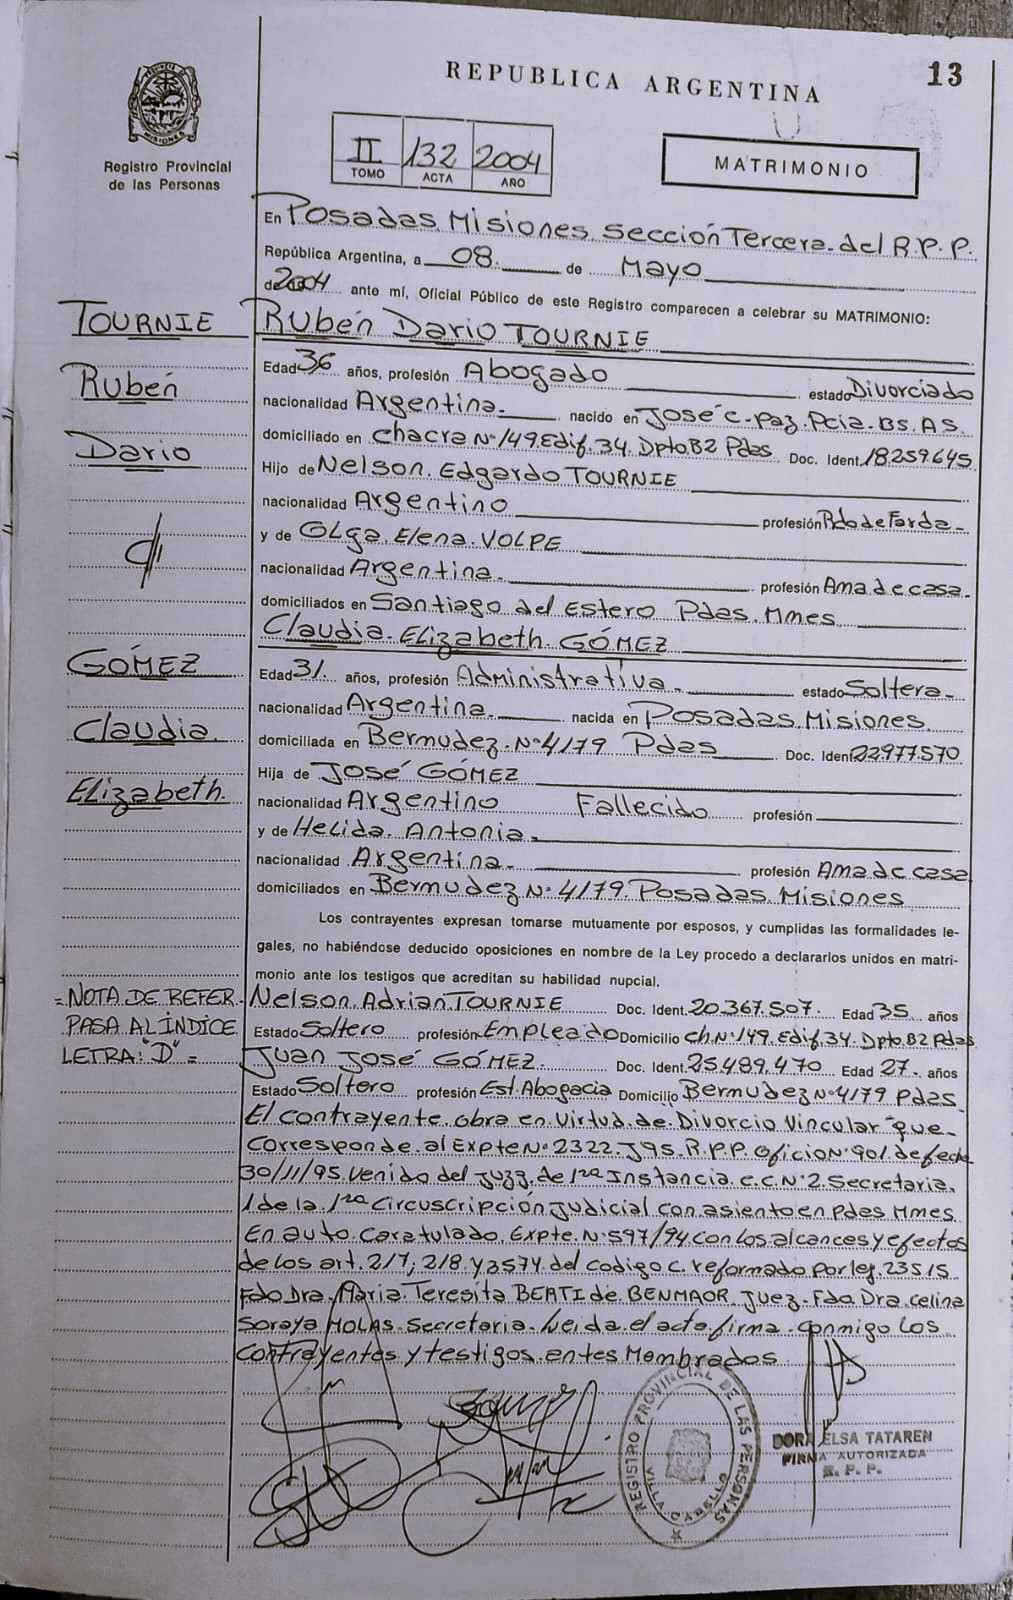 13
REPUBLICA ARGENTINA
Registro Provincial
de las Personas
II 132 2004
TOMO ACTA AÑO
MATRIMONIO
En Posadas Misiones Sección Tercera del R.P.P.
República Argentina, a 08 de Mayo
de 2004 ante mí, Oficial Público de este Registro comparecen a celebrar su MATRIMONIO:
TOURNIE
Rubén Dario TOURNIE
Edad 36 años, profesión Abogado estado Divorciado
Rubén
nacionalidad Argentina. nacido en José C. Paz. Pcia. BS. AS.
Dario
domiciliado en Chacra Nº 149. Edif. 34. Dpto B2 Pdas Doc. Ident. 18259645
Hijo de Nelson. Edgardo TOURNIE
nacionalidad Argentino profesión
y de OLga. Elena. VOLPE
nacionalidad Argentina. profesión Ama de casa.
domiciliados en Santiago del Estero Pdas. Mnes
Claudia. Elizabeth. GÓMEZ
GÓMEZ
Edad 31. años, profesión Administrativa. estado Soltera.
nacionalidad Argentina. nacida en Posadas. Misiones.
Claudia.
domiciliada en Bermudez. Nº 4179 Pdas Doc. Ident 22977.570
Hija de José GÓMEZ
Elizabeth.
nacionalidad Argentino Fallecido profesión
y de Helida. Antonia.
nacionalidad Argentina. profesión Ama de casa
domiciliados en Bermudez Nº 4179. Posadas. Misiones
Los contrayentes expresan tomarse mutuamente por esposos, y cumplidas las formalidades le-
gales, no habiéndose deducido oposiciones en nombre de la Ley procedo a declararlos unidos en matri-
monio ante los testigos que acreditan su habilidad nupcial.
= NOTA DE REFER.
PASA AL ÍNDICE
LETRA: "D" =
Nelson. Adrian TOURNIE Doc. Ident. 20.367.507. Edad 35 años
Estado Soltero profesión Empleado Domicilio Ch. Nº 149. Edif. 34. Dpto. B2 Pdas
Juan José GÓMEZ. Doc. Ident. 25.489.470 Edad 27. años
Estado Soltero profesión Est. Abogacia Domicilio Bermudez Nº 4179 Pdas
El contrayente obra en virtud de Divorcio Vincular que
corresponde al Expte Nº 2322. J95. R.P.P. Oficio Nº 901. de fecha
30/11/95. venido del Juzg. de 1ra Instancia. C.C. Nº 2. Secretaria.
1 de la 1ra Circuscripción Judicial con asiento en Pdas Mnes
En auto caratulado Expte. Nº 597/94 con los alcances y efectos
de los art. 217; 218. y 3574 del codigo c. reformado por ley. 23515
Fdo Dra. Maria. Teresita BERTI de BENMAOR. Juez. Fdo. Dra. Celina
Soraya MOLAS. Secretaria. Leida el acta firma conmigo los
contrayentes y testigos antes Mombrados
REGISTRO PROVINCIAL DE LAS PERSONAS
DORA ELSA TATAREN
FIRMA AUTORIZADA
R. P. P.